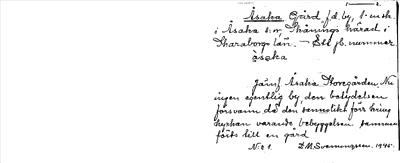 1 2.
Åsaka Gård f.d. by, 1 mtl.
i Åsaka s:n Vånings härad i
Skaraborgs län. - Ett jb. nummer
åsaka
Jämf Åsaka Storegården. Nu
ingen egentlig by, den betydelsen
försvann då den omedelbart förr kring
kyrkan varande bebyggelsen samman
förts till en gård
N:o 1. D.M. Svenningsson. 1945.